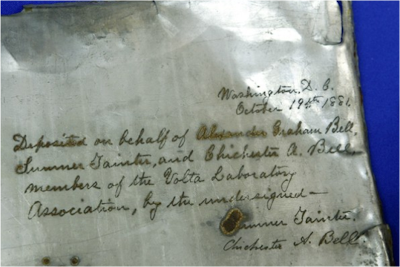 Washington, D. C.
October 19th 1881.
Deposited on behalf of Alexander Graham Bell,
Sumner Tainter, and Chichester A. Bell
members of the Volta Laboratory
Association, by the undersigned—
Sumner Tainter.
Chichester A. Bell.